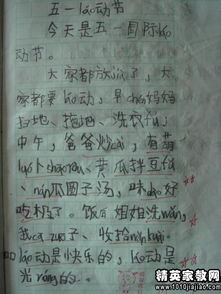 五一láo动节
今天是五一国际láo
动节。
大家都放jià了，大
家都要láo动，早chén妈妈
扫地、拖地、洗衣fú，
中午，爸爸炒cài，有
黄瓜拌豆
南瓜圆子汤，味dào好
吃极了。饭后姐姐洗wǎn，
我cā zuō子、收拾
láo动是快乐的，láo动是
光róng的。
精英家教网
www.1010jiajiao.com